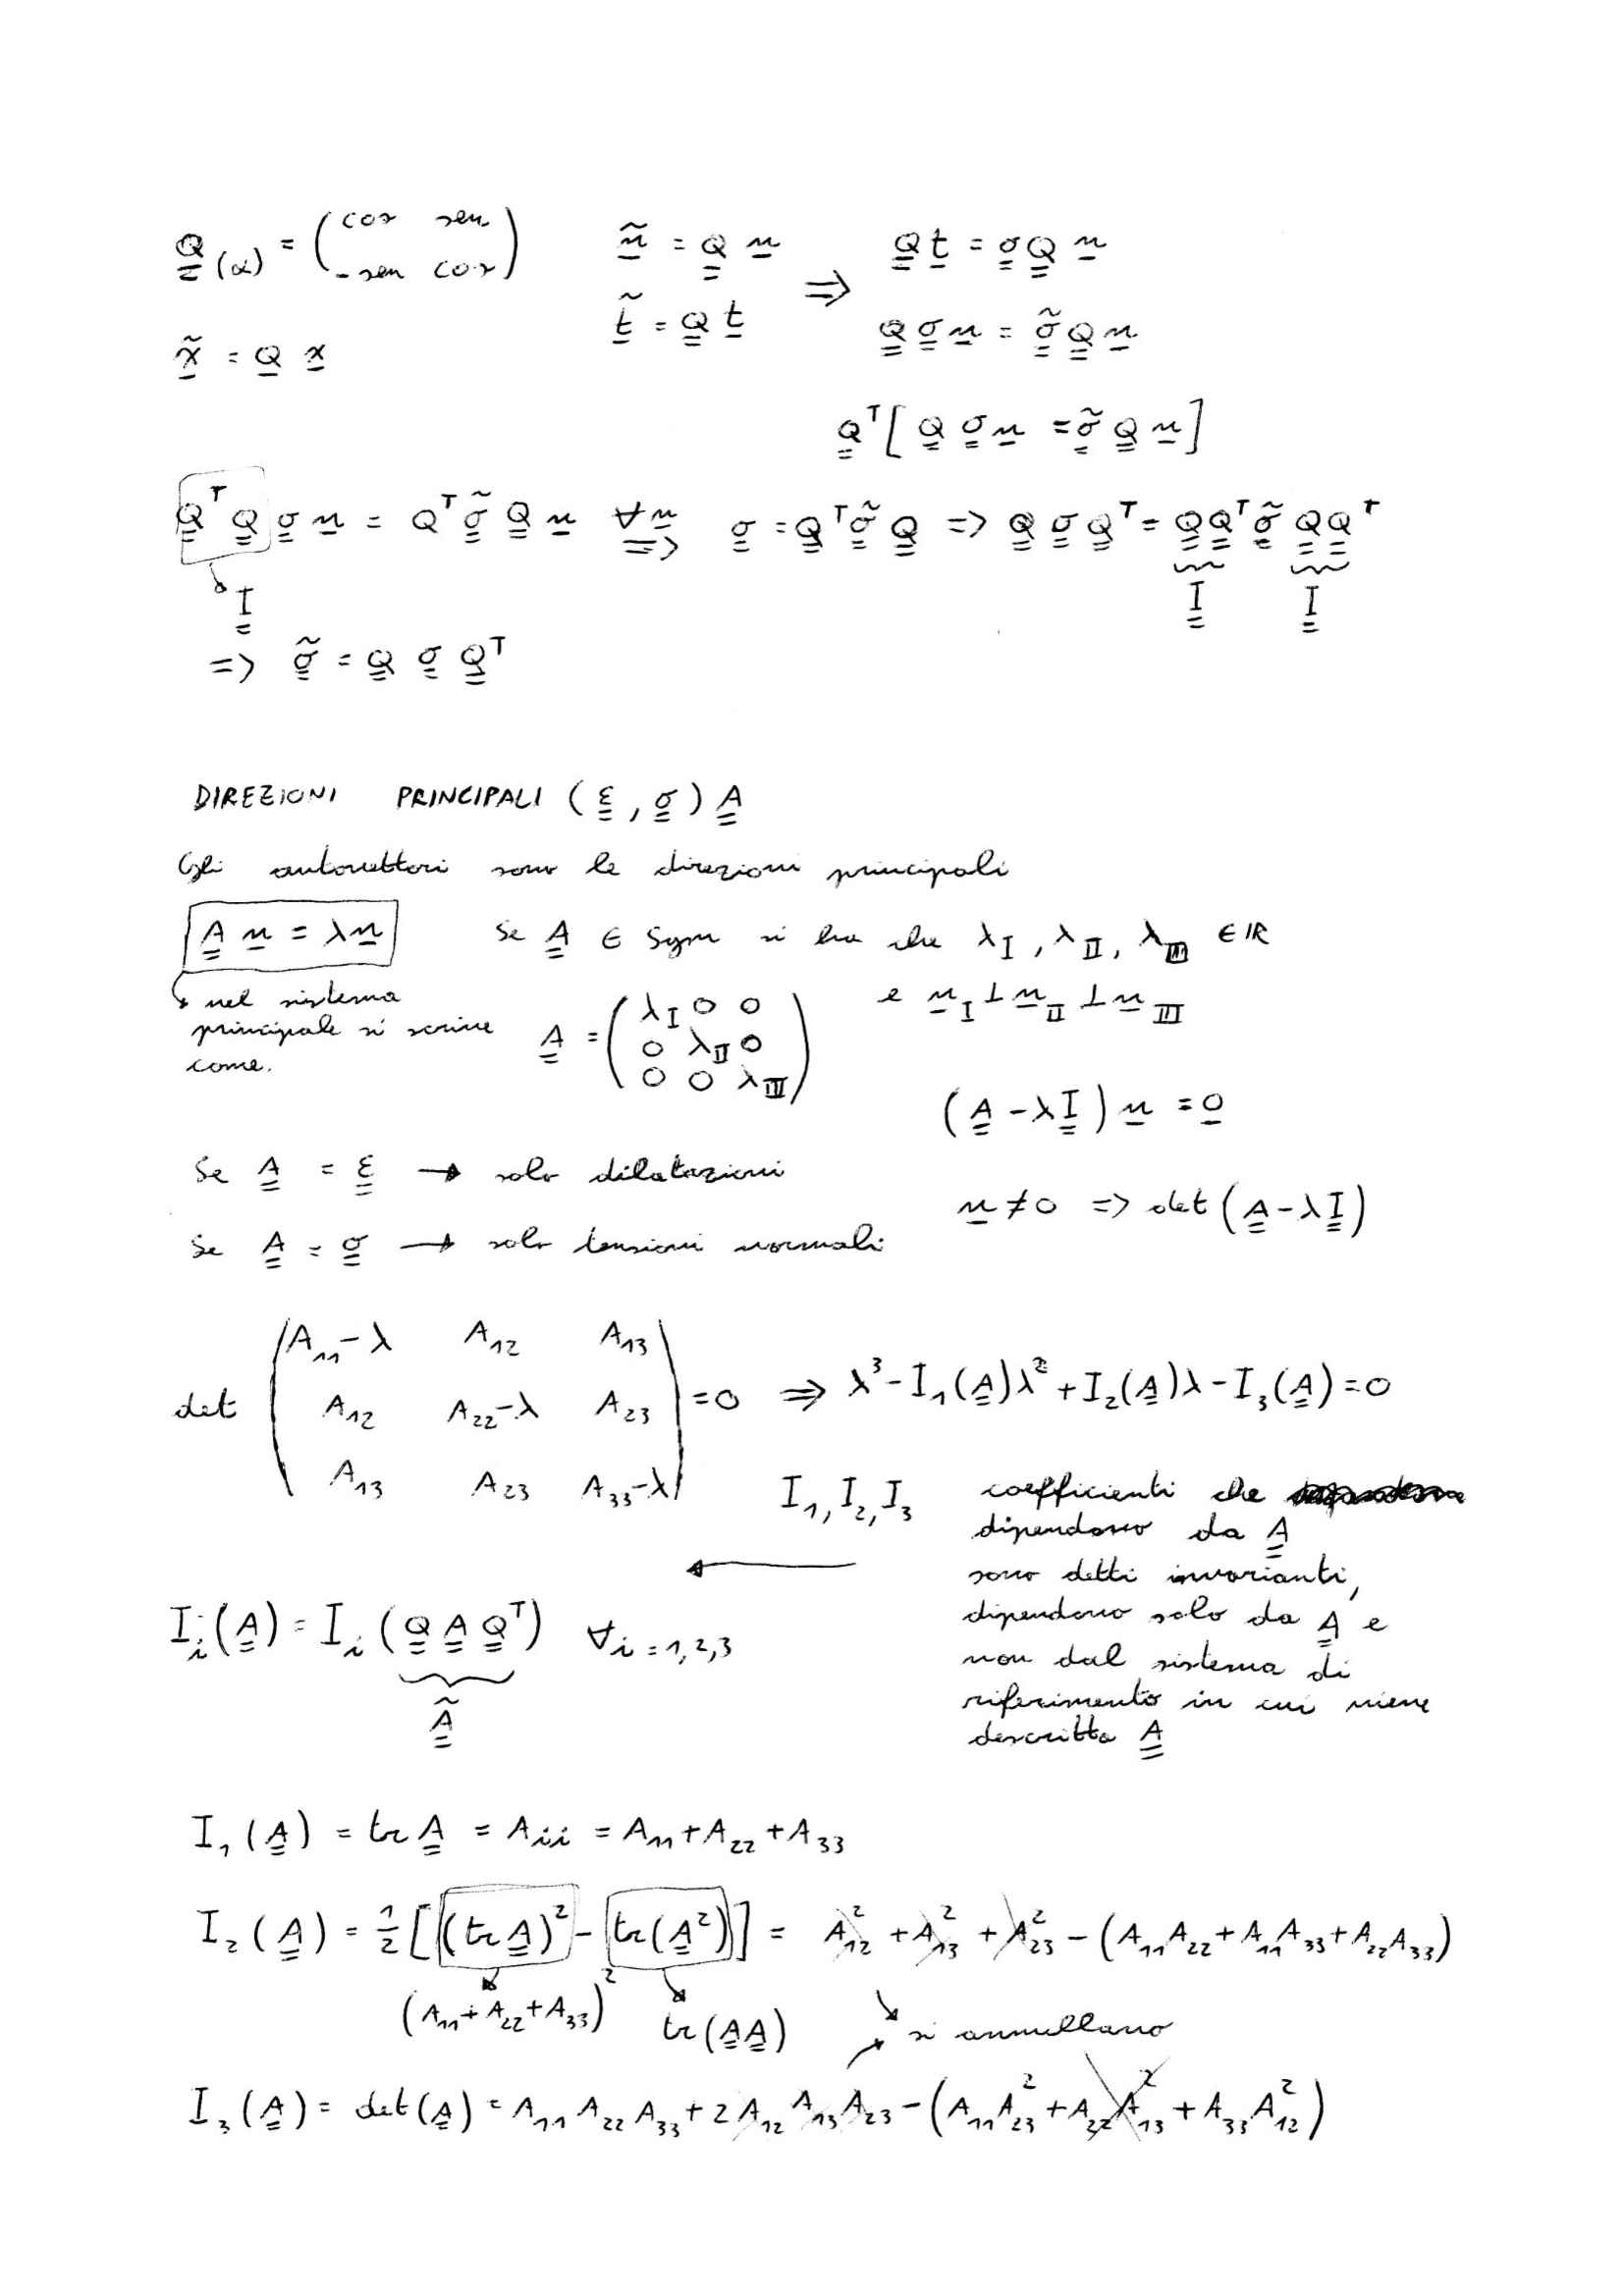 Q̳(α) = ( cos sen
- sen cos )
ñ̲ = Q̳ n̲
t̲̃ = Q̳ t̲
⇒
Q̳ t̲ = σ̳ Q̳ n̲
Q̳ σ̳ n̲ = σ̳̃ Q̳ n̲
x̲̃ = Q̲ x̲
Q̳ᵀ [ Q̳ σ̳ n̲ = σ̳̃ Q̳ n̲ ]
Q̳ᵀ Q̳ σ̳ n̲ = Qᵀ σ̳̃ Q̳ n̲ ∀n̲ => σ̳ = Q̳ᵀ σ̳̃ Q̳ => Q̳ σ̳ Q̳ᵀ = Q̳Q̳ᵀ σ̳̃ Q̳Q̳ᵀ
I̳ I̳ I̳
=> σ̳̃ = Q̳ σ̳ Q̳ᵀ
DIREZIONI PRINCIPALI (ε̳, σ̳) A̳
Gli autovettori sono le direzioni principali
A̳ n̲ = λn̲ Se A̳ ∈ Sym si ha che λ_I, λ_II, λ_III ∈ ℝ
e n̲_I ⊥ n̲_II ⊥ n̲_III
nel sistema
principale si scrive
come.
A̳ = ( λ_I 0 0
0 λ_II 0
0 0 λ_III )
(A̳ - λI̳) n̲ = 0̲
Se A̳ = ε̳ → solo dilatazioni
n̲ ≠ 0 => det (A̳ - λI̳)
Se A̳ = σ̳ → solo tensioni normali
det ( A₁₁ - λ A₁₂ A₁₃
A₁₂ A₂₂ - λ A₂₃
A₁₃ A₂₃ A₃₃ - λ ) = 0 ⇒ λ³ - I₁(A̳)λ² + I₂(A̳)λ - I₃(A̳) = 0
I₁, I₂, I₃ coefficienti che
dipendono da A̳
sono detti invarianti,
dipendono solo da A̳ e
non dal sistema di
riferimento in cui viene
descritto A̳
←
I_i(A̳) = I_i (Q̳ A̳ Q̳ᵀ) ∀i = 1,2,3
Ã̳
I₁(A̳) = tr A̳ = A_ii = A₁₁ + A₂₂ + A₃₃
I₂(A̳) = 1/2 [(tr A̳)² - tr(A̳²)] = A₁₂² + A₁₃² + A₂₃² - (A₁₁A₂₂ + A₁₁A₃₃ + A₂₂A₃₃)
(A₁₁ + A₂₂ + A₃₃)² tr(A̳A̳) si annullano
I₃(A̳) = det(A̳) = A₁₁ A₂₂ A₃₃ + 2 A₁₂ A₁₃ A₂₃ - (A₁₁A₂₃² + A₂₂A₁₃² + A₃₃A₁₂²)